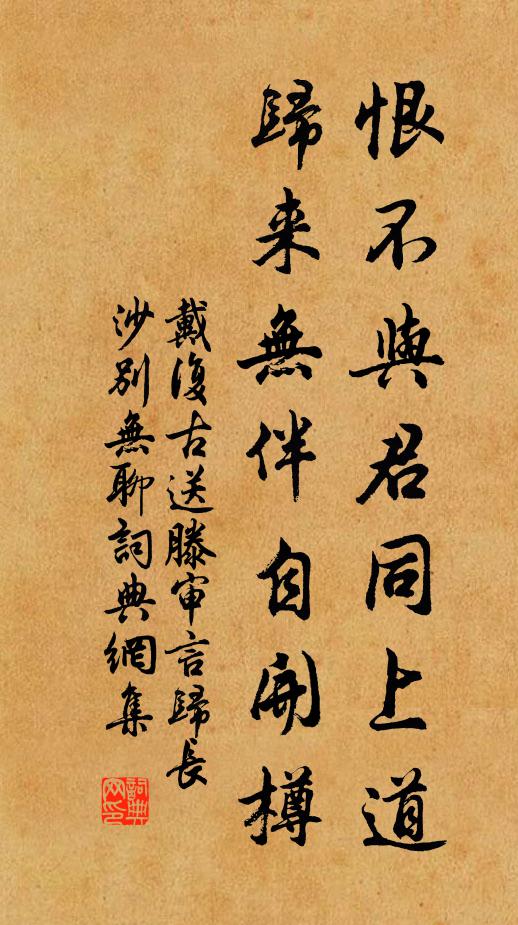 恨不與君同上道
歸来無伴自開樽
戴復古送滕审言歸長
沙别無聊詞典網集
詞典
网印